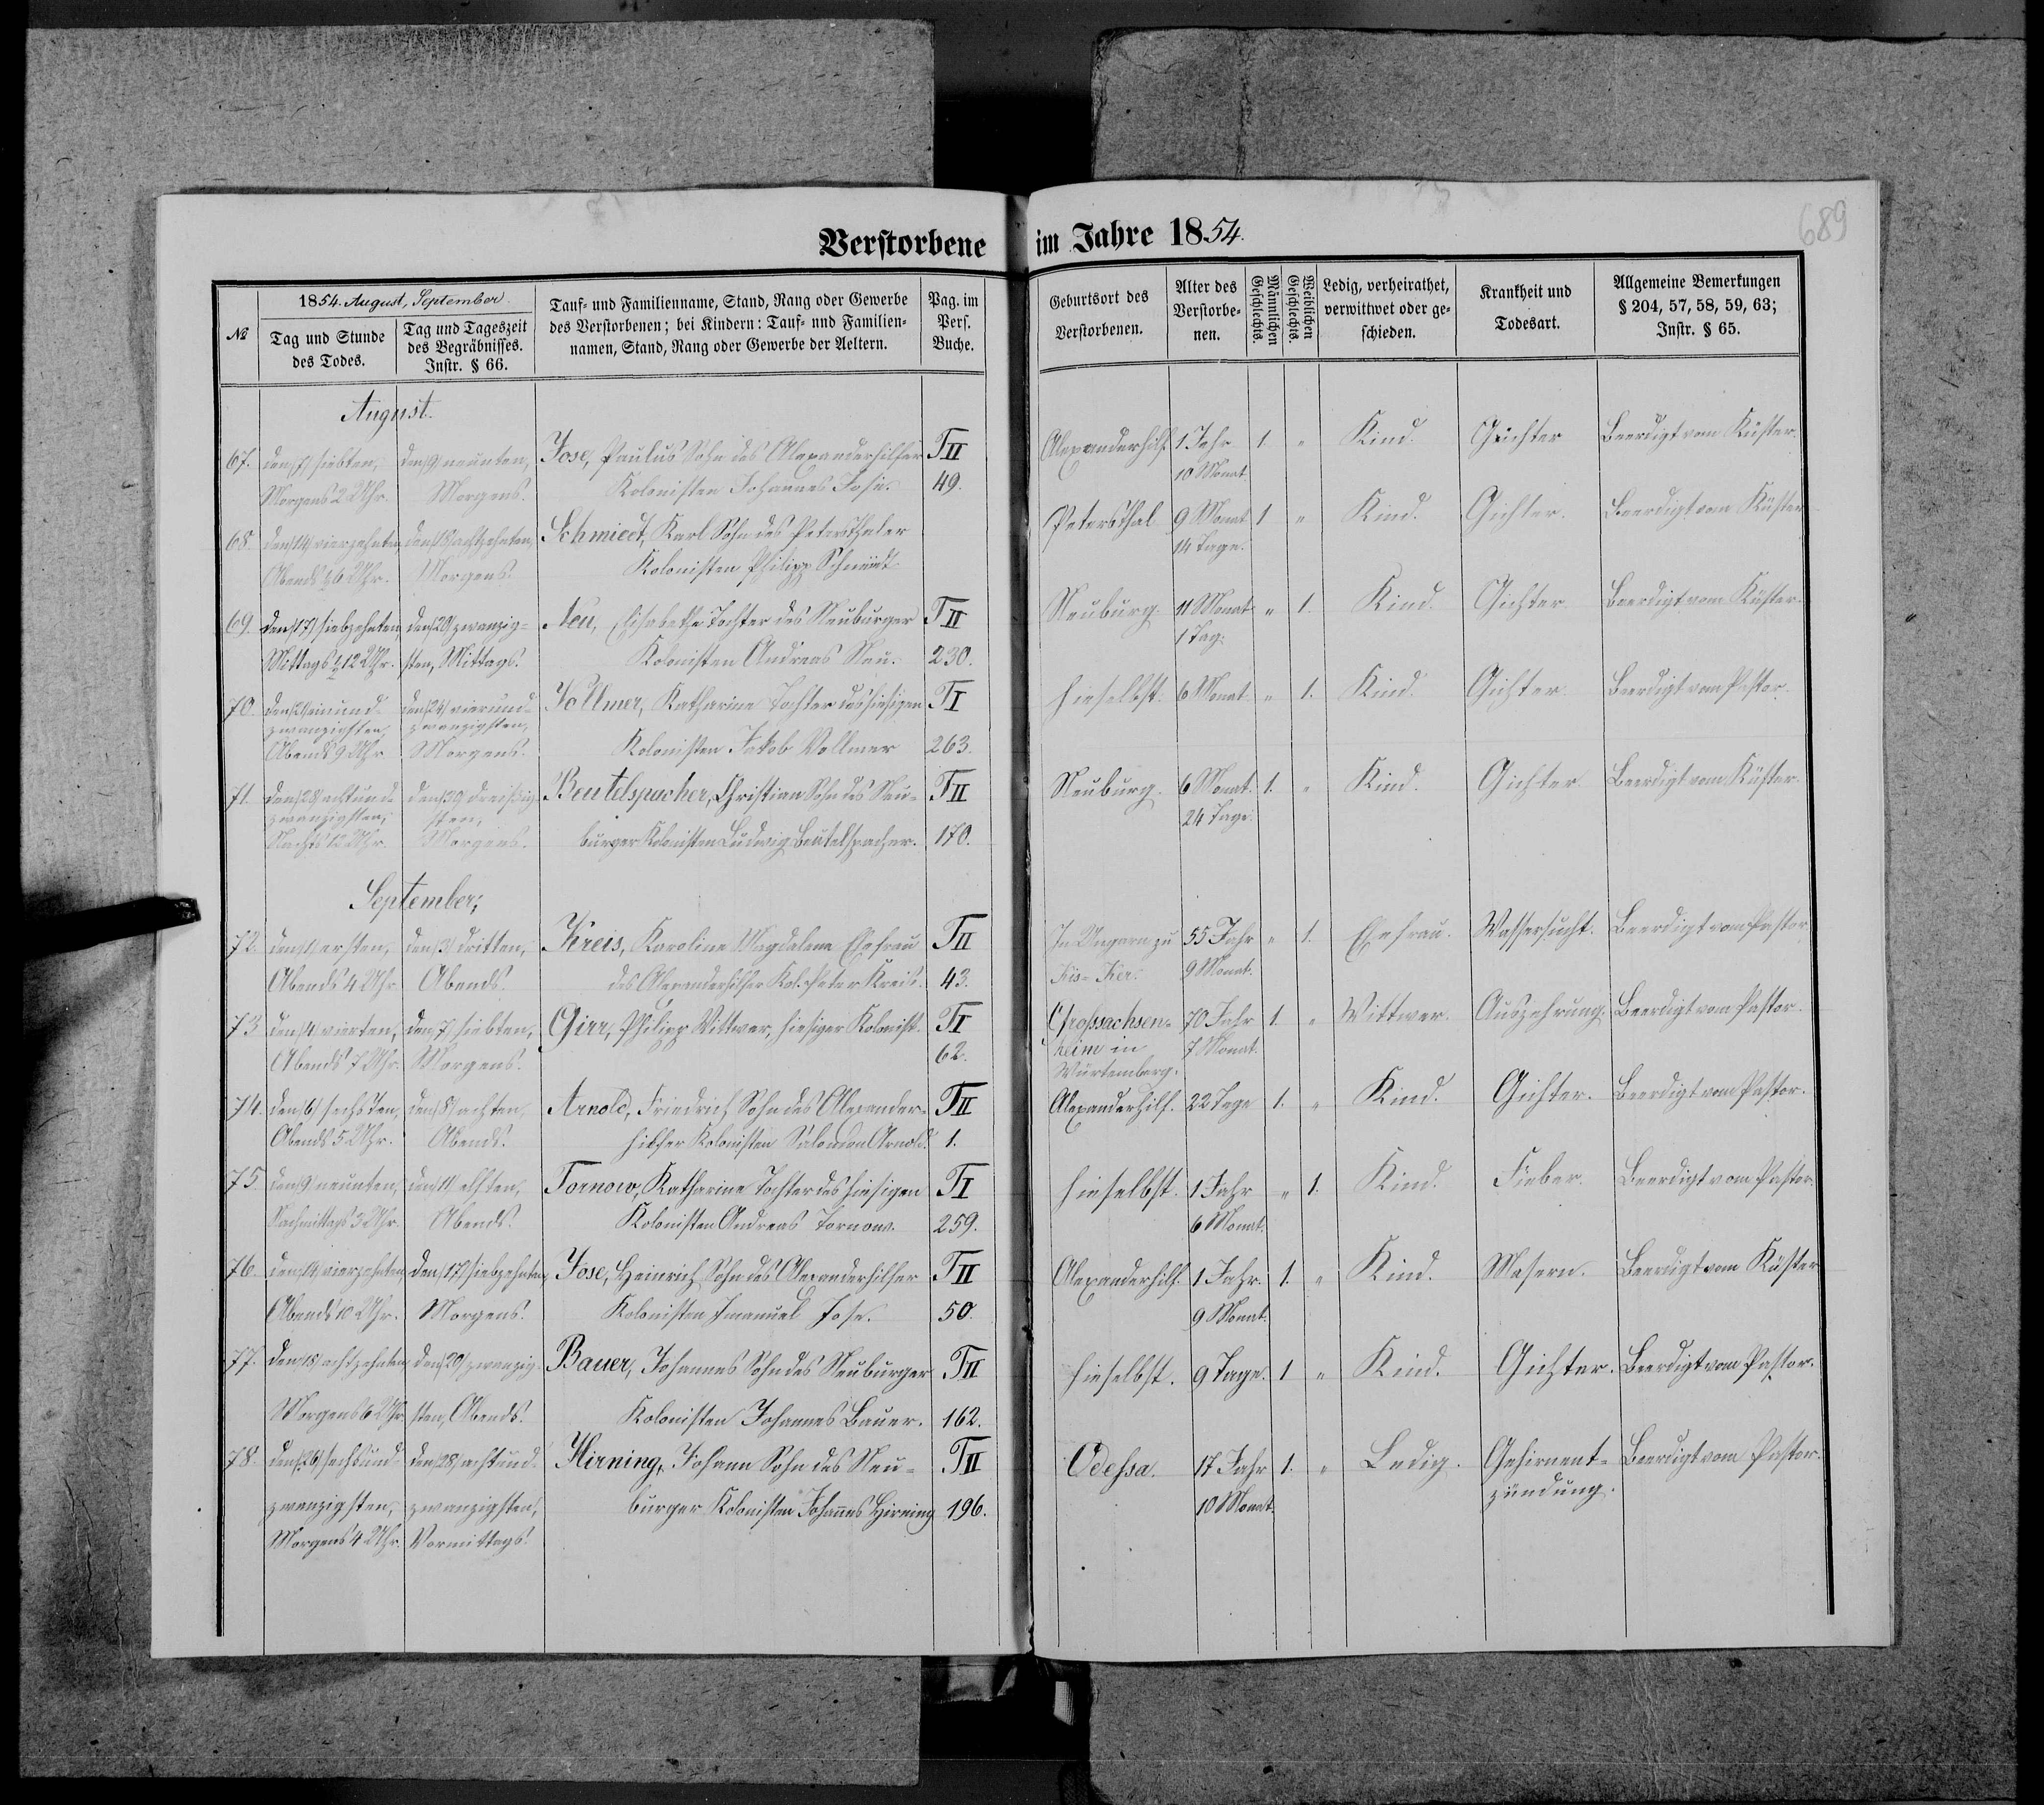 689
Verstorbene im Jahre 1854.
№
1854. August, September.
Tag und Stunde des Todes.
Tag und Tageszeit des Begräbnisses. Instr. § 66.
Tauf- und Familienname, Stand, Rang oder Gewerbe des Verstorbenen; bei Kindern: Tauf- und Familien-namen, Stand, Rang oder Gewerbe der Aeltern.
Pag. im Pers. Buche.
Geburtsort des Verstorbenen.
Alter des Verstorbe-nen.
Männlichen Geschlechts.
Weiblichen Geschlechts.
Ledig, verheirathet, verwittwet oder ge-schieden.
Krankheit und Todesart.
Allgemeine Bemerkungen § 204, 57, 58, 59, 63; Instr. § 65.
August.
67. den 7 siebten, den 9 neunten, Jose, Paulus Sohn des Alexanderhilfer TII Alexanderhilf. 1 Jahr 1. " Kind. Gichter Beerdigt vom Küster.
Morgens 2 Uhr. Morgens. Kolonisten Johannes Jose. 49. 10 Monat.
68. den 14 vierzehnten, den 18 achtzehnten, Schmiedt, Karl Sohn des Petersthaler Petersthal 9 Monat 1 " Kind. Gichter. Beerdigt vom Küster
Abends ½6 Uhr. Morgens. Kolonisten Philipp Schmidt 14 Tage.
69. den 17 siebzehnten den 20 zwanzig- Neu, Elisabetha Tochter des Neuburger TII Neuburg. 11 Monat " 1. Kind. Gichter. Beerdigt vom Küster.
Mittags ½12 Uhr. sten, Mittags. Kolonisten Andreas Neu. 230. 1 Tag.
70. den 21 einund- den 24 vierund- Vollmer, Katharina Tochter des hiesigen TI hieselbst. 6 Monat. " 1. Kind. Gichter Beerdigt vom Pastor.
zwanzigsten, zwanzigsten,
Abends 9 Uhr Morgens. Kolonisten Jakob Vollmer 263.
71. den 28 achtund- den 30 dreißig- Beutelspacher, Christian Sohn des Neu- TII Neuburg. 6 Monat. 1. " Kind. Gichter Beerdigt vom Küster.
zwanzigsten, sten, 24 Tage.
Nachts 12 Uhr. Morgens. burger Kolonisten Ludwig Beutelspacher. 170.
September;
72. den 1 ersten, den 3 dritten, Kreis, Karolina Magdalena Ehefrau TII In Ungarn zu 55 Jahr " 1. Ehefrau. Wassersucht. Beerdigt vom Pastor
Abends 4 Uhr Abends. des Alexanderhilfer Kol. Peter Kreis. 43. Kis-Ker. 9 Monat.
73 den 4 vierten, den 7 siebten, Girr, Philipp Wittwer, hiesiger Kolonist. TI Großsachsen- 70 Jahr 1. " Wittwer. Auszehrung. Beerdigt vom Pastor.
Abends 7 Uhr. Morgens. 62. heim in 7 Monat.
Würtemberg.
74. den 6 sechsten, den 8 achten, Arnold, Friedrich Sohn des Alexander- TII Alexanderhilf. 22 Tage 1. " Kind. Gichter. Beerdigt vom Pastor.
Abends 5 Uhr. Abends. hilfer Kolonisten Salomon Arnold. 1.
75. den 9 neunten, den 11 elften, Tornow, Katharina Tochter des hiesigen TI hieselbst. 1 Jahr " 1. Kind. Fieber. Beerdigt vom Pastor.
Nachmittags 3 Uhr. Abends. Kolonisten Andreas Tornow. 259. 6 Monat.
76. den 14 vierzehnten den 17 siebzehnten, Jose, Heinrich Sohn des Alexanderhilfer TII Alexanderhilf. 1 Jahr. 1. " Kind. Masern. Beerdigt vom Küster
Abends 10 Uhr. Morgens. Kolonisten Imanuel Jose. 50. 9 Monat.
77. den 18 achtzehnten den 20 zwanzig- Bauer, Johannes Sohn des Neuburger TII hieselbst. 9 Tage. 1 " Kind. Gichter. Beerdigt vom Pastor.
Morgens 6 Uhr. sten, Abends. Kolonisten Johannes Bauer. 162.
78. den 26 sechsund- den 28 achtund- Hirning, Johann Sohn des Neu- TII Odessa. 17 Jahr 1. " Ledig. Gehirnent- Beerdigt vom Pastor.
zwanzigsten, zwanzigsten, burger Kolonisten Johannes Hirning 196. 10 Monat. zündung.
Morgens 4 Uhr. Vormittags.